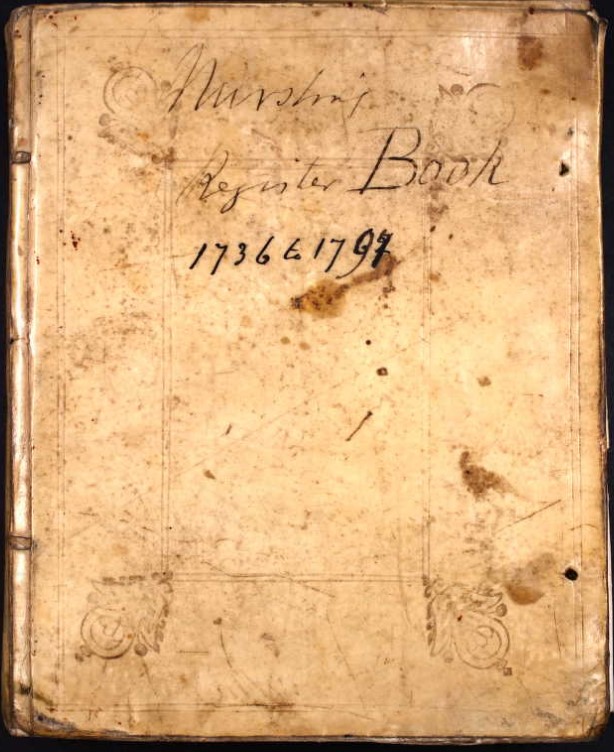 Nursling
Register Book
1736 to 1794